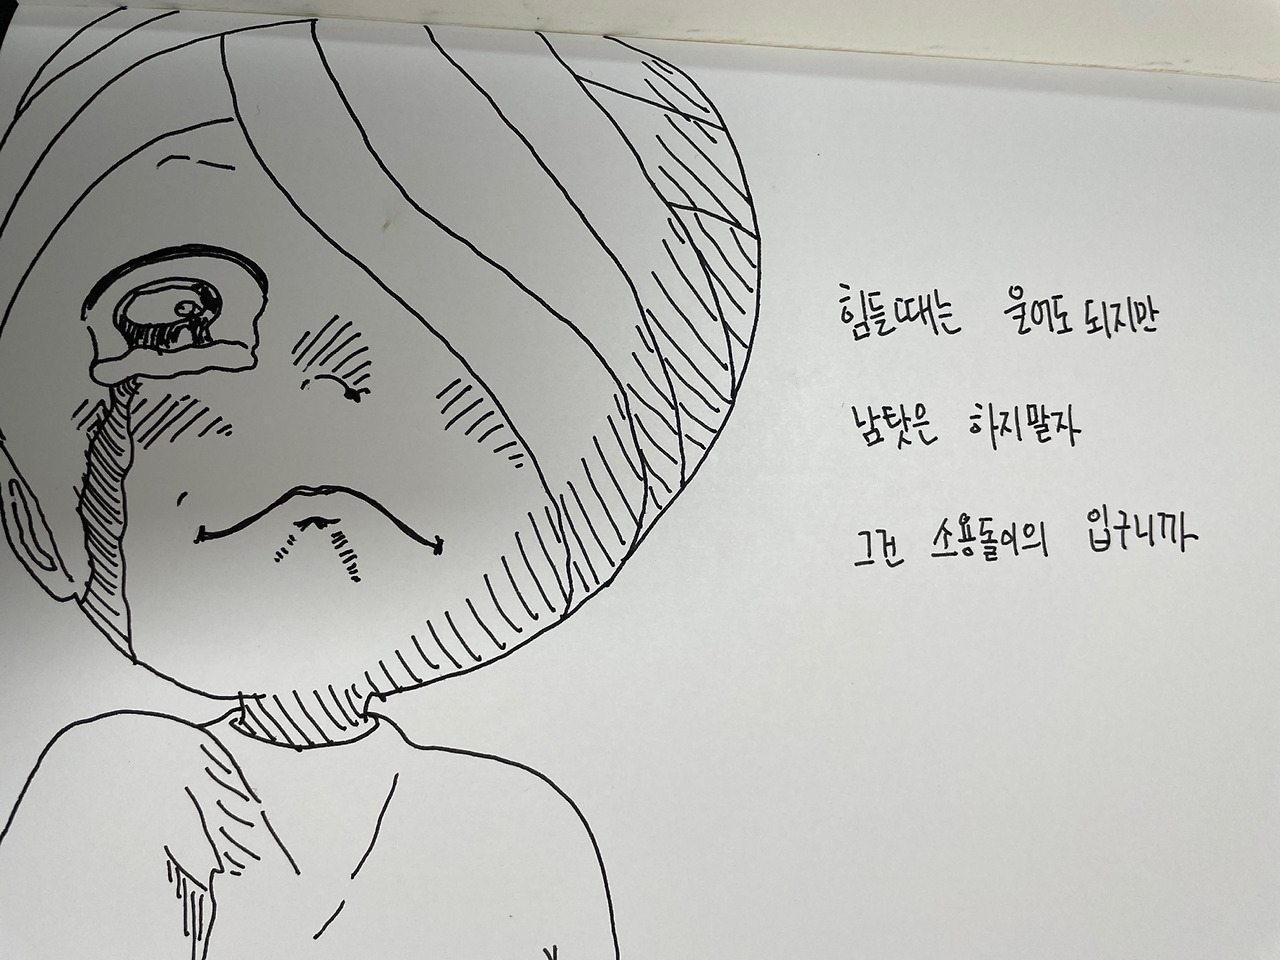 힘들때는 울어도 되지만
남탓은 하지말자
그건 소용돌이의 입구니까